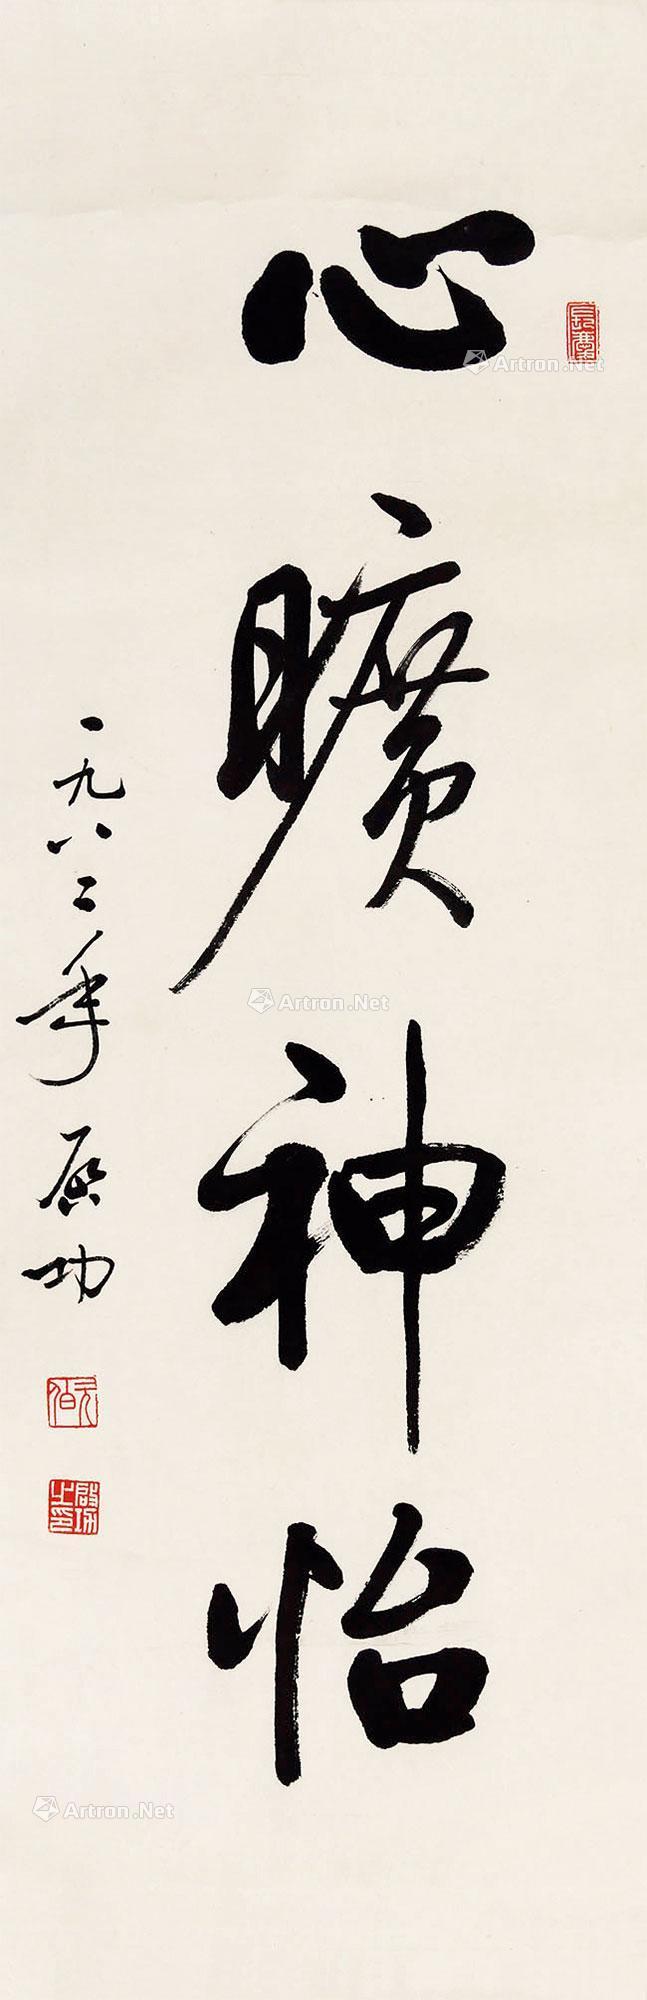 心曠神怡
一九八二年
启功
元白
啟功之印
Artron.Net
Artron.Net
Artron.Net